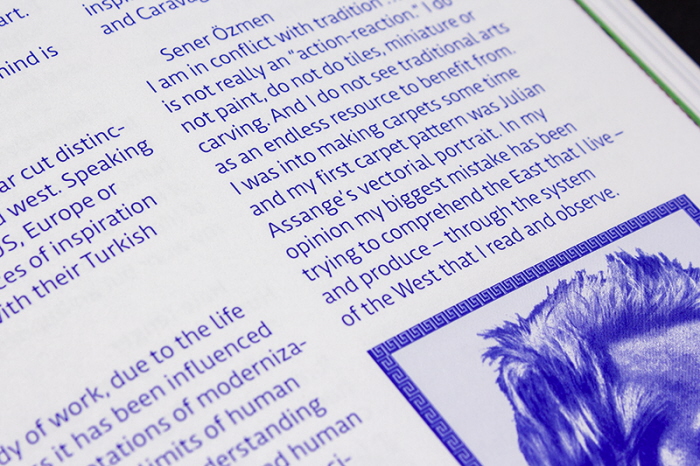 art.
hind is
ar cut distinc-
d west. Speaking
US, Europe or
ces of inspiration
With their Turkish
dy of work, due to the life
s it has been influenced
ntations of moderniza-
limits of human
derstanding
nd human
ci-
inspi
and Carava
Sener Özmen
I am in conflict with tradition
is not really an “action-reaction.” I do
not paint, do not do tiles, miniature or
carving. And I do not see traditional arts
as an endless resource to benefit from.
I was into making carpets some time
and my first carpet pattern was Julian
Assange's vectorial portrait. In my
opinion my biggest mistake has been
trying to comprehend the East that I live –
and produce – through the system
of the West that I read and observe.